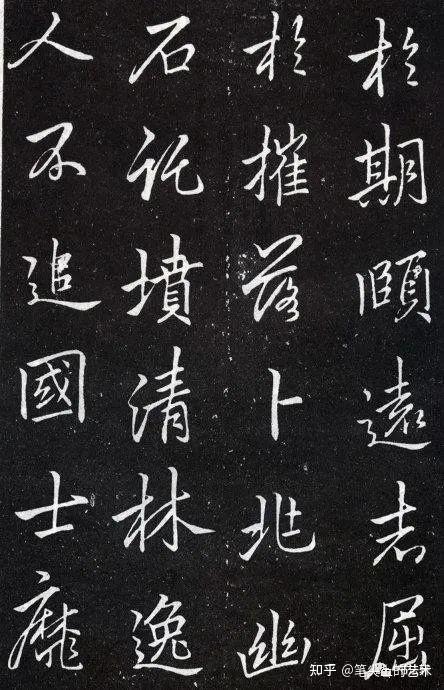 於期頤遠志屈
於摧落卜兆幽
石託墳清林逸
人不追國士靡
知乎 @笔尖的艺术